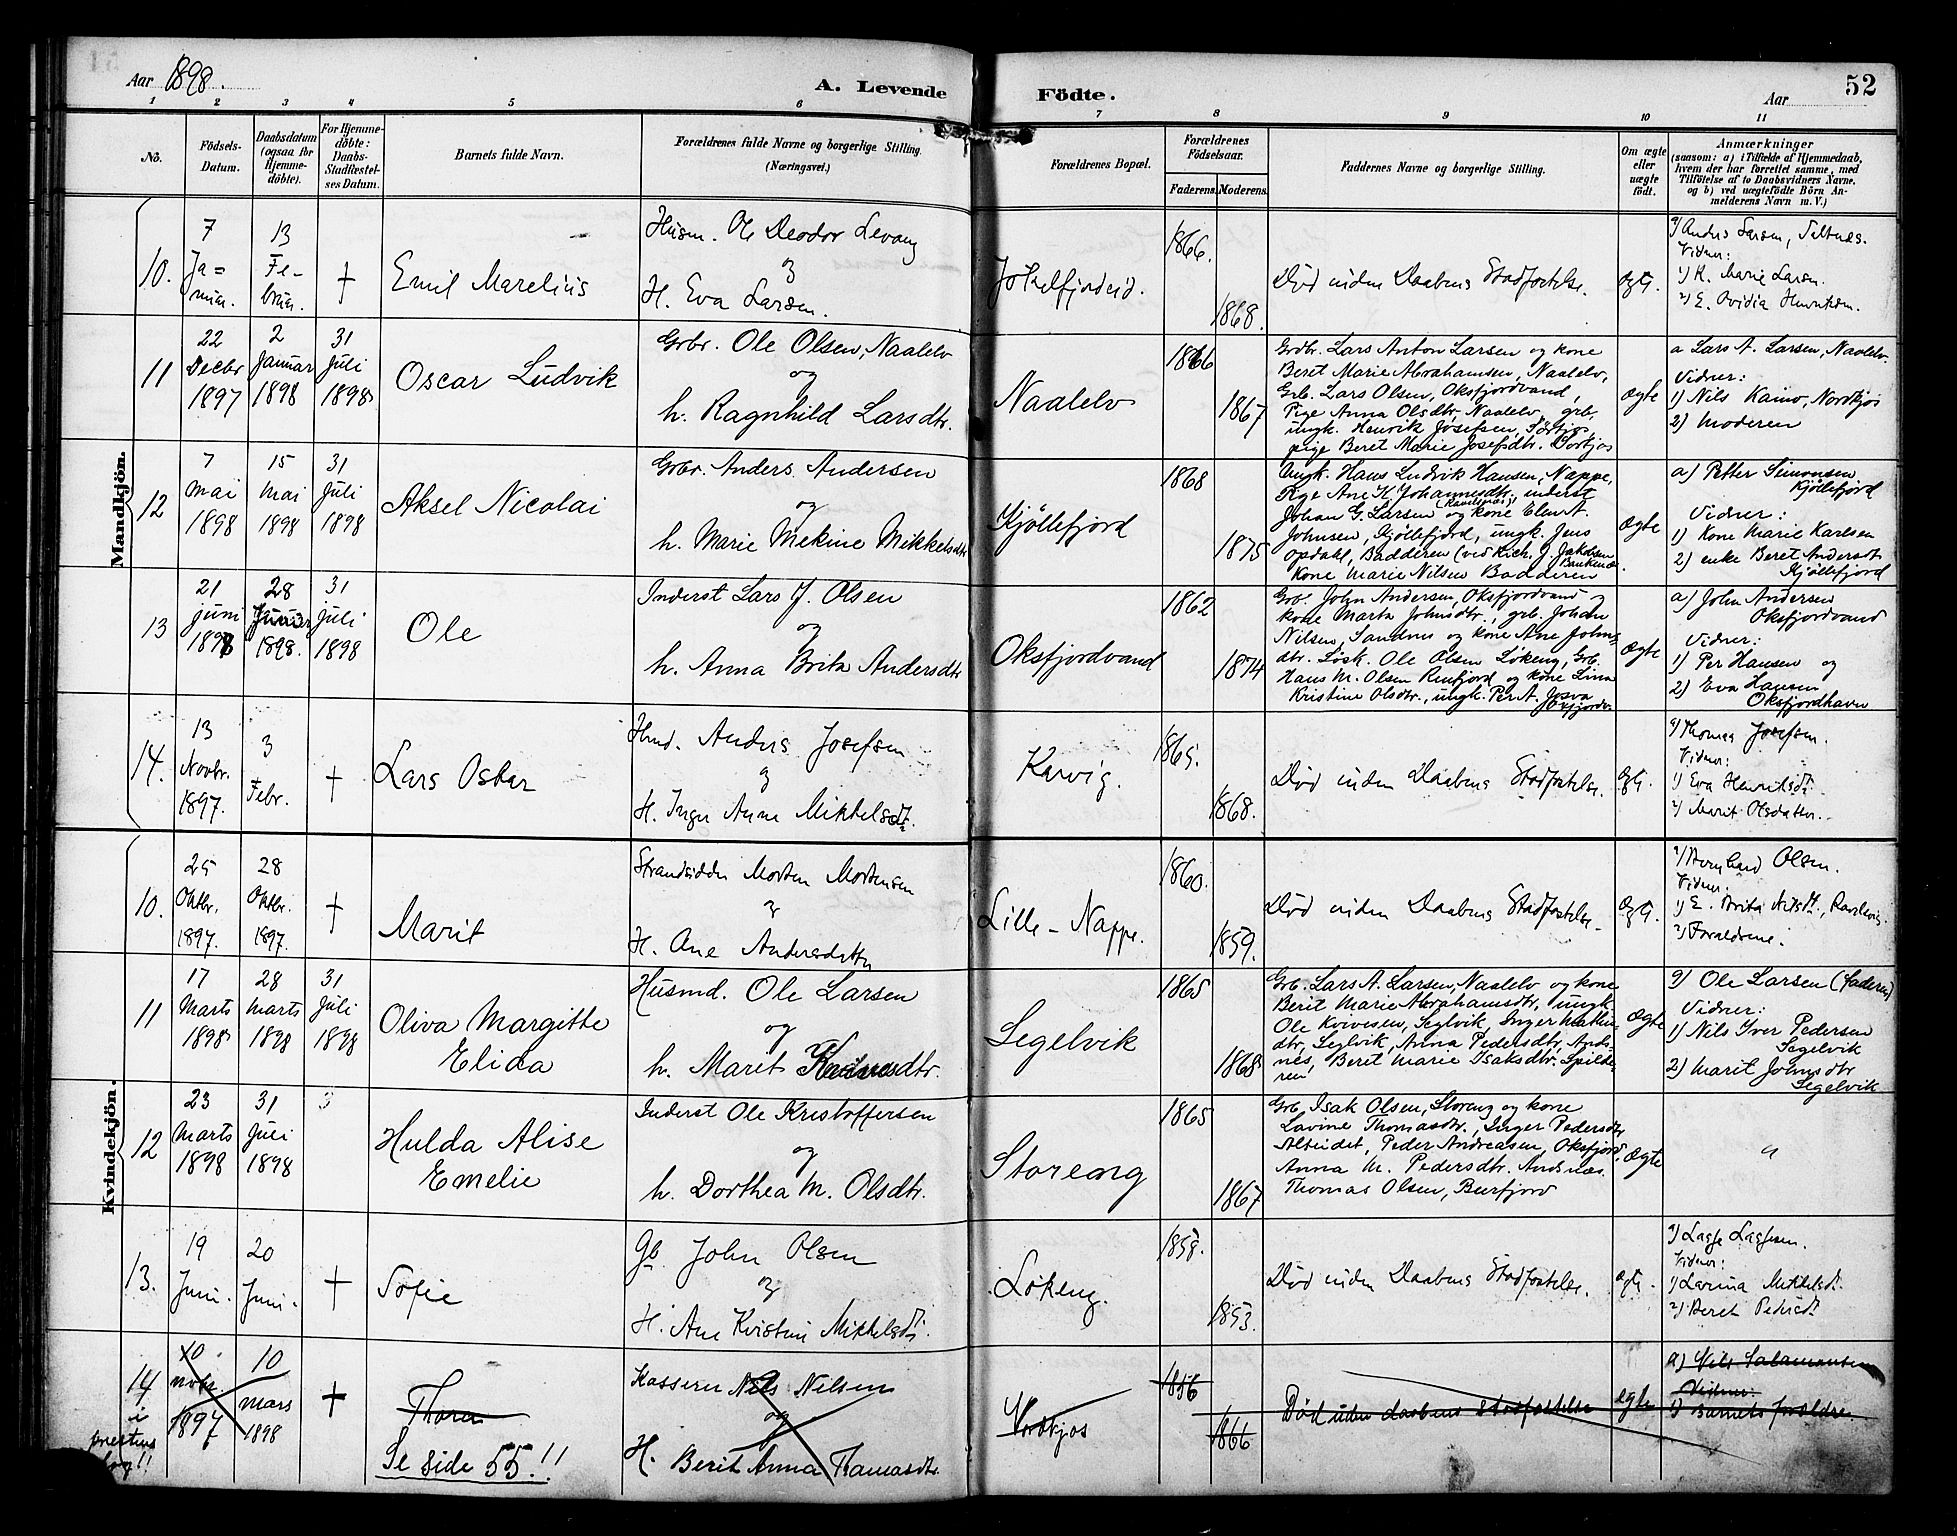 Aar 1898.
A. Levende Födte.
52
Aar
1 2 3 4 5 6 7 8 9 10 11
No.
Födsels-Datum.
Daabsdatum (ogsaa for Hjemme-döbte).
For Hjemme-döbte: Daabs-Stadfæstel-ses Datum.
Barnets fulde Navn.
Forældrenes fulde Navne og borgerlige Stilling.
(Næringsvei.)
Forældrenes Bopæl.
Forældrenes Födselsaar.
Faderens. Moderens.
Faddernes Navne og borgerlige Stilling.
Om ægte eller uægte födt.
Anmærkninger
(saasom: a) i Tilfælde af Hjemmedaab,
hvem der har forrettet samme, med
Tilföielse af to Daabsvidners Navne,
og b) ved uægtefödte Börn An-
melderens Navn m. V.)
Mandkjön.
10.
7 Ja=nuar.
13 Fe-bruar.
+
Emil Marelius
Husm. Ole Deodor Levang
og
H. Eva Larsen.
Jøkelfjordeid.
1866.
1868.
Død inden Daabens Stadfæstelse.
ægt.
a) Anders Larsen, Saltnes.
Vidner:
1) K. Marie Larsen.
2) E. Ovidia Henriksen.
11
22 Decbr 1897
2 Januar 1898
31 Juli 1898
Oscar Ludvik
Grbr. Ole Olsen, Naalelv
og
h. Ragnhild Larsdtr.
Naalelv
1866
1867
Grdbr. Lars Anton Larsen og kone
Beret Marie Abrahamsen, Naalelv,
Grb. Lars Olsen, Oksfjordvand,
Pige Anna Olsdtr, Naalelv, grb.
ungk. Henrik Josefsen, Sørkjos,
pige Beret Marie Josefsdtr. Sørkjos
ægte
a Lars A. Larsen, Naalelv.
Vidner:
1) Nils Kaino, Nordkjos
2) Moderen
12
7 Mai 1898
15 Mai 1898
31 Juli 1898
Aksel Nicolai
Grbr. Anders Andersen
og
h. Marie Mekine Mikkelsdtr
Kjøllefjord
1868
1875
Ungk. Hans Ludvik Hansen, Nappe,
Pige Ane K. Johannesdtr., inderst
Johan G. Larsen og kone Elen A.
Johnsen, Kjøllefjord, ungk. Jens
Opdahl, Badderen (ved Rich. J. Jakobsen
Kone Marie Nilsen Badderen
ægte
a) Petter Simonsen
Kjøllefjord
Vidner:
1) Kone Marie Karlsen
2) enke Beret Andersdt
Kjøllefjord
13
21 juni 1898
28 1898.
31 juli 1898
Ole
Inderst Lars J. Olsen
og
h. Anna Brita Andersdtr
Oksfjordvand
1862
1874
Grb. John Andersen, Oksfjordvand og
kone Marta Johnsdtr., grb. Johan
Nilsen, Sandnes og kone Ane Johns=
dtr. Løsk. Ole Olsen Løkeng, Grb.
Hans M. Olsen Reinfjord og kone Lina
Kristine Olsdtr., ungk. Per A. Josva
Oxfjordv.
ægte
a) John Andersen
Oksfjordvand
Vidner:
1) Per Hansen og
2) Eva Hansen
Oksfjordhavn
14.
13 Novbr. 1897.
3 Febr.
+
Lars Oskar
Husmd. Anders Josefsen
og
H. Inger Anne Mikkelsdt.
Karvig.
1865.
1868.
Død inden Daabens Stadfæstelse.
ægt.
a) Thomas Josefsen.
Vidner:
1) Eva Henriksdt.
2) Marit Olsdatter.
Kvindekjön.
10.
25 Oktbr. 1897.
28 Oktbr. 1897.
+
Marit
Strandsidder Morten Mortensen
og
H. Ane Andersdatter
Lille-Nappe.
1860.
1859.
Død inden Daabens Stadfæstelse.
ægt.
a) Bernhard Olsen.
Vidner.
1) E. Brita Nilsdt., Ravelsvig
2) Forældrene.
11
17 Marts 1898
28 Marts 1898
31 Juli 1898
Oliva Margitte
Elida
Husmd. Ole Larsen
og
h. Marit
Segelvik
1865
1868
Grb. Lars A. Larsen, Naalelv og kone
Berit Marie Abrahamsdtr, ungk.
Ole Kvivesen, Seglvik, Inger Mathis-
dtr, Seglvik, Anna Pedersdtr, Ands-
nes, Beret Marie Isaksdtr. Spilde-
ren
ægte
a) Ole Larsen (faderen)
Vidner:
1) Nils Iver Pedersen
Segelvik
2) Marit Johnsdtr
Segelvik
12
23 Marts 1898
31 Juli 1898
3
Hulda Alise
Emelie
Inderst Ole Kristoffersen
og
h. Dorthea M. Olsdtr.
Storeng
1865
1867
Grb. Isak Olsen, Storeng og kone
Lavine Thomasdtr., Inger Pedersdtr
Alteidet, Peder Andreasen, Oksfjord,
Anna M. Pedersdtr. Andsnæs.
Thomas Olsen, Burfjord
ægte
"
13.
19 Juni.
20 Juni.
+
Sofie
Gb. John Olsen
og
H. Ane Kristine Mikkelsdt.
Løkeng.
1858.
1853.
Død inden Daabens Stadfæstelse.
ægt.
a) Lasse Lassesen.
Vidner:
1) Lavina Mikkelsdt.
2) Beret Pedersdt
14
i
prestens
bog!!
10 novbr. 1897
10 mars 1898
+
Thora
Se side 55!!
Kassem Nils Nilsen
og
H. Berit Anna Thomasdtr.
Nordkjos
1856
1866
Død uden daabens stadfæstelse
ægte
a) Nils Salamonsen
Vidner.
1) Barnets forældre.